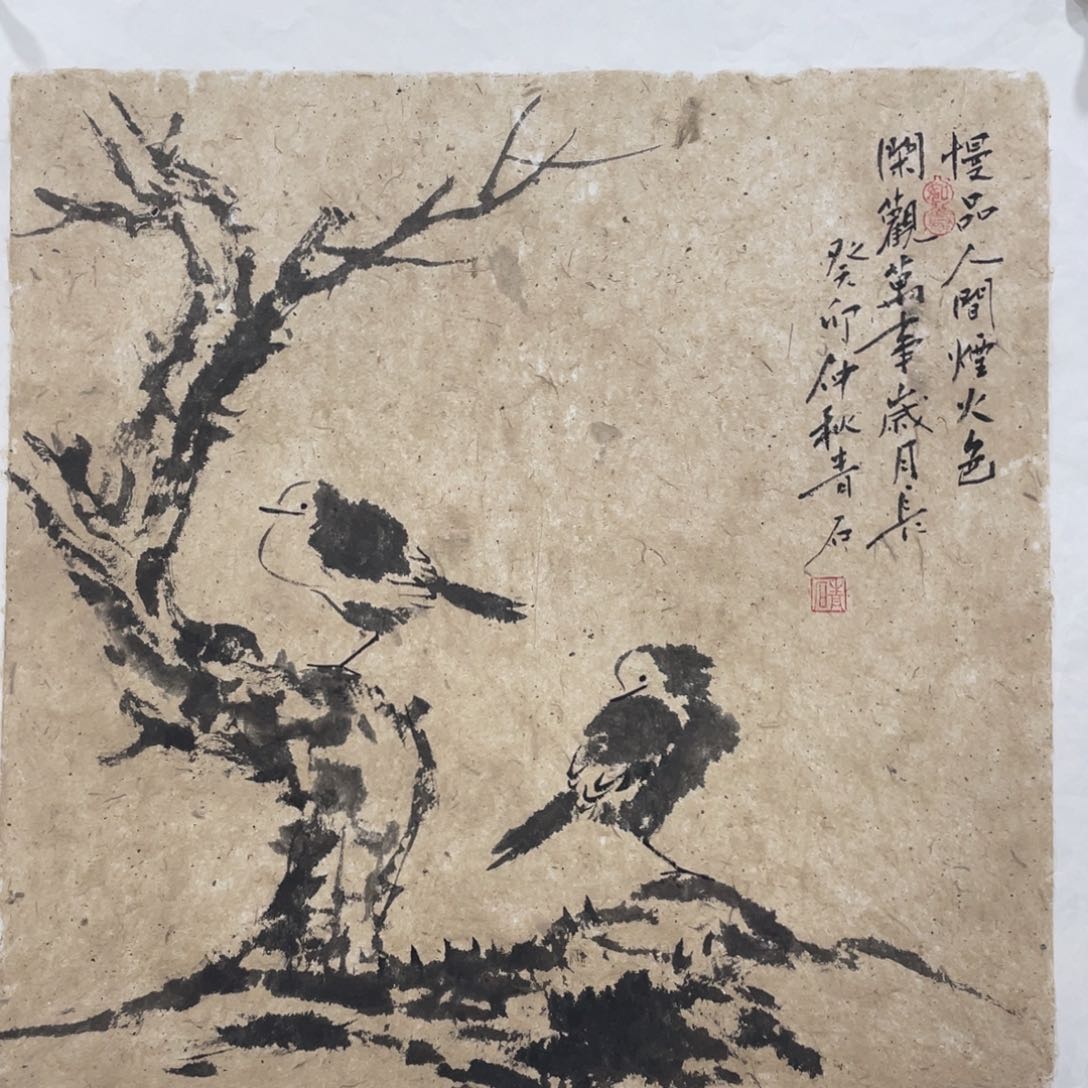 慢品人間煙火色
閑觀萬事歲月長
癸卯仲秋青石